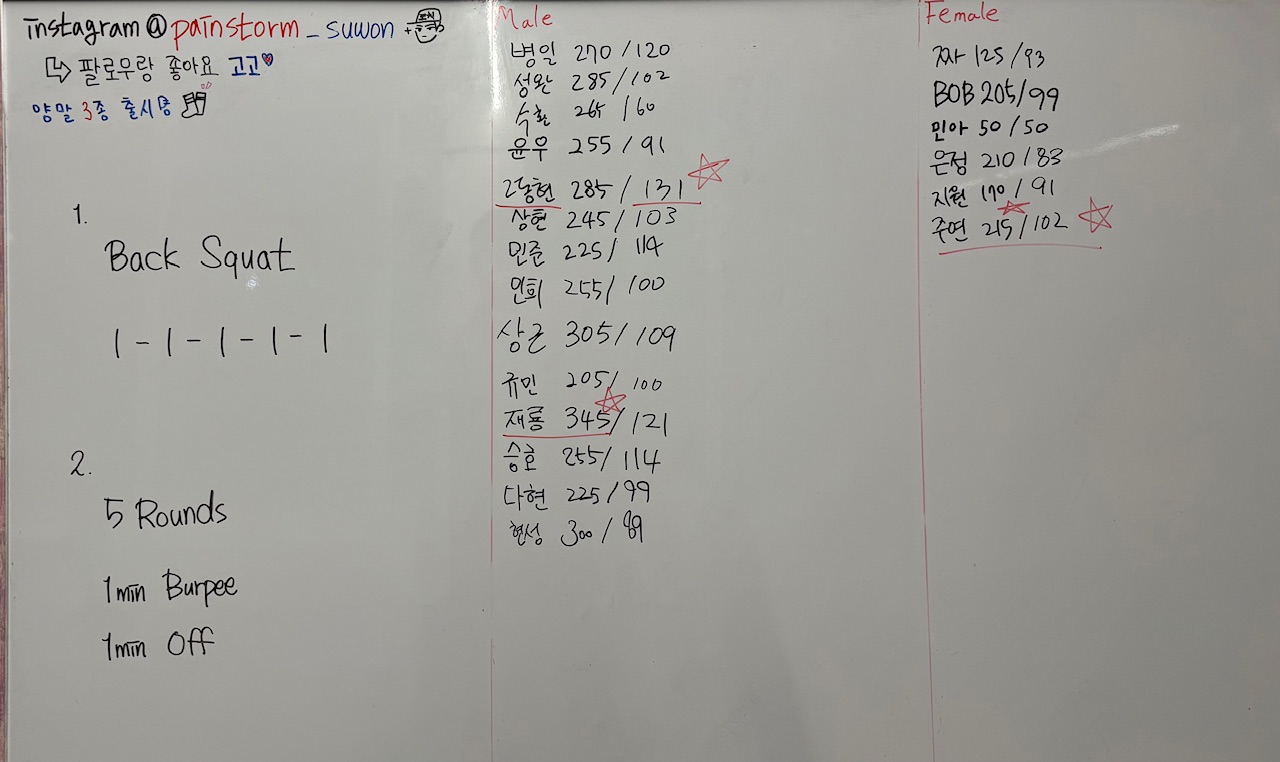 instagram@painstorm_suwon
팔로우랑 좋아요 고고
양말 3종 출시중
1.
Back Squat
1-1-1-1-1
2.
5 Rounds
1min Burpee
1min Off
Male
병일 270/120
성완 285/102
수환 265/60
윤우 255/91
고동현 285/131
상현 245/103
민준 225/114
인희 255/100
상근 305/109
규민 205/100
재룡 345/121
승호 255/114
다현 225/99
현성 300/89
Female
짜 125/93
BOB 205/99
민아 50/50
은정 210/83
지원 170/91
주연 215/102